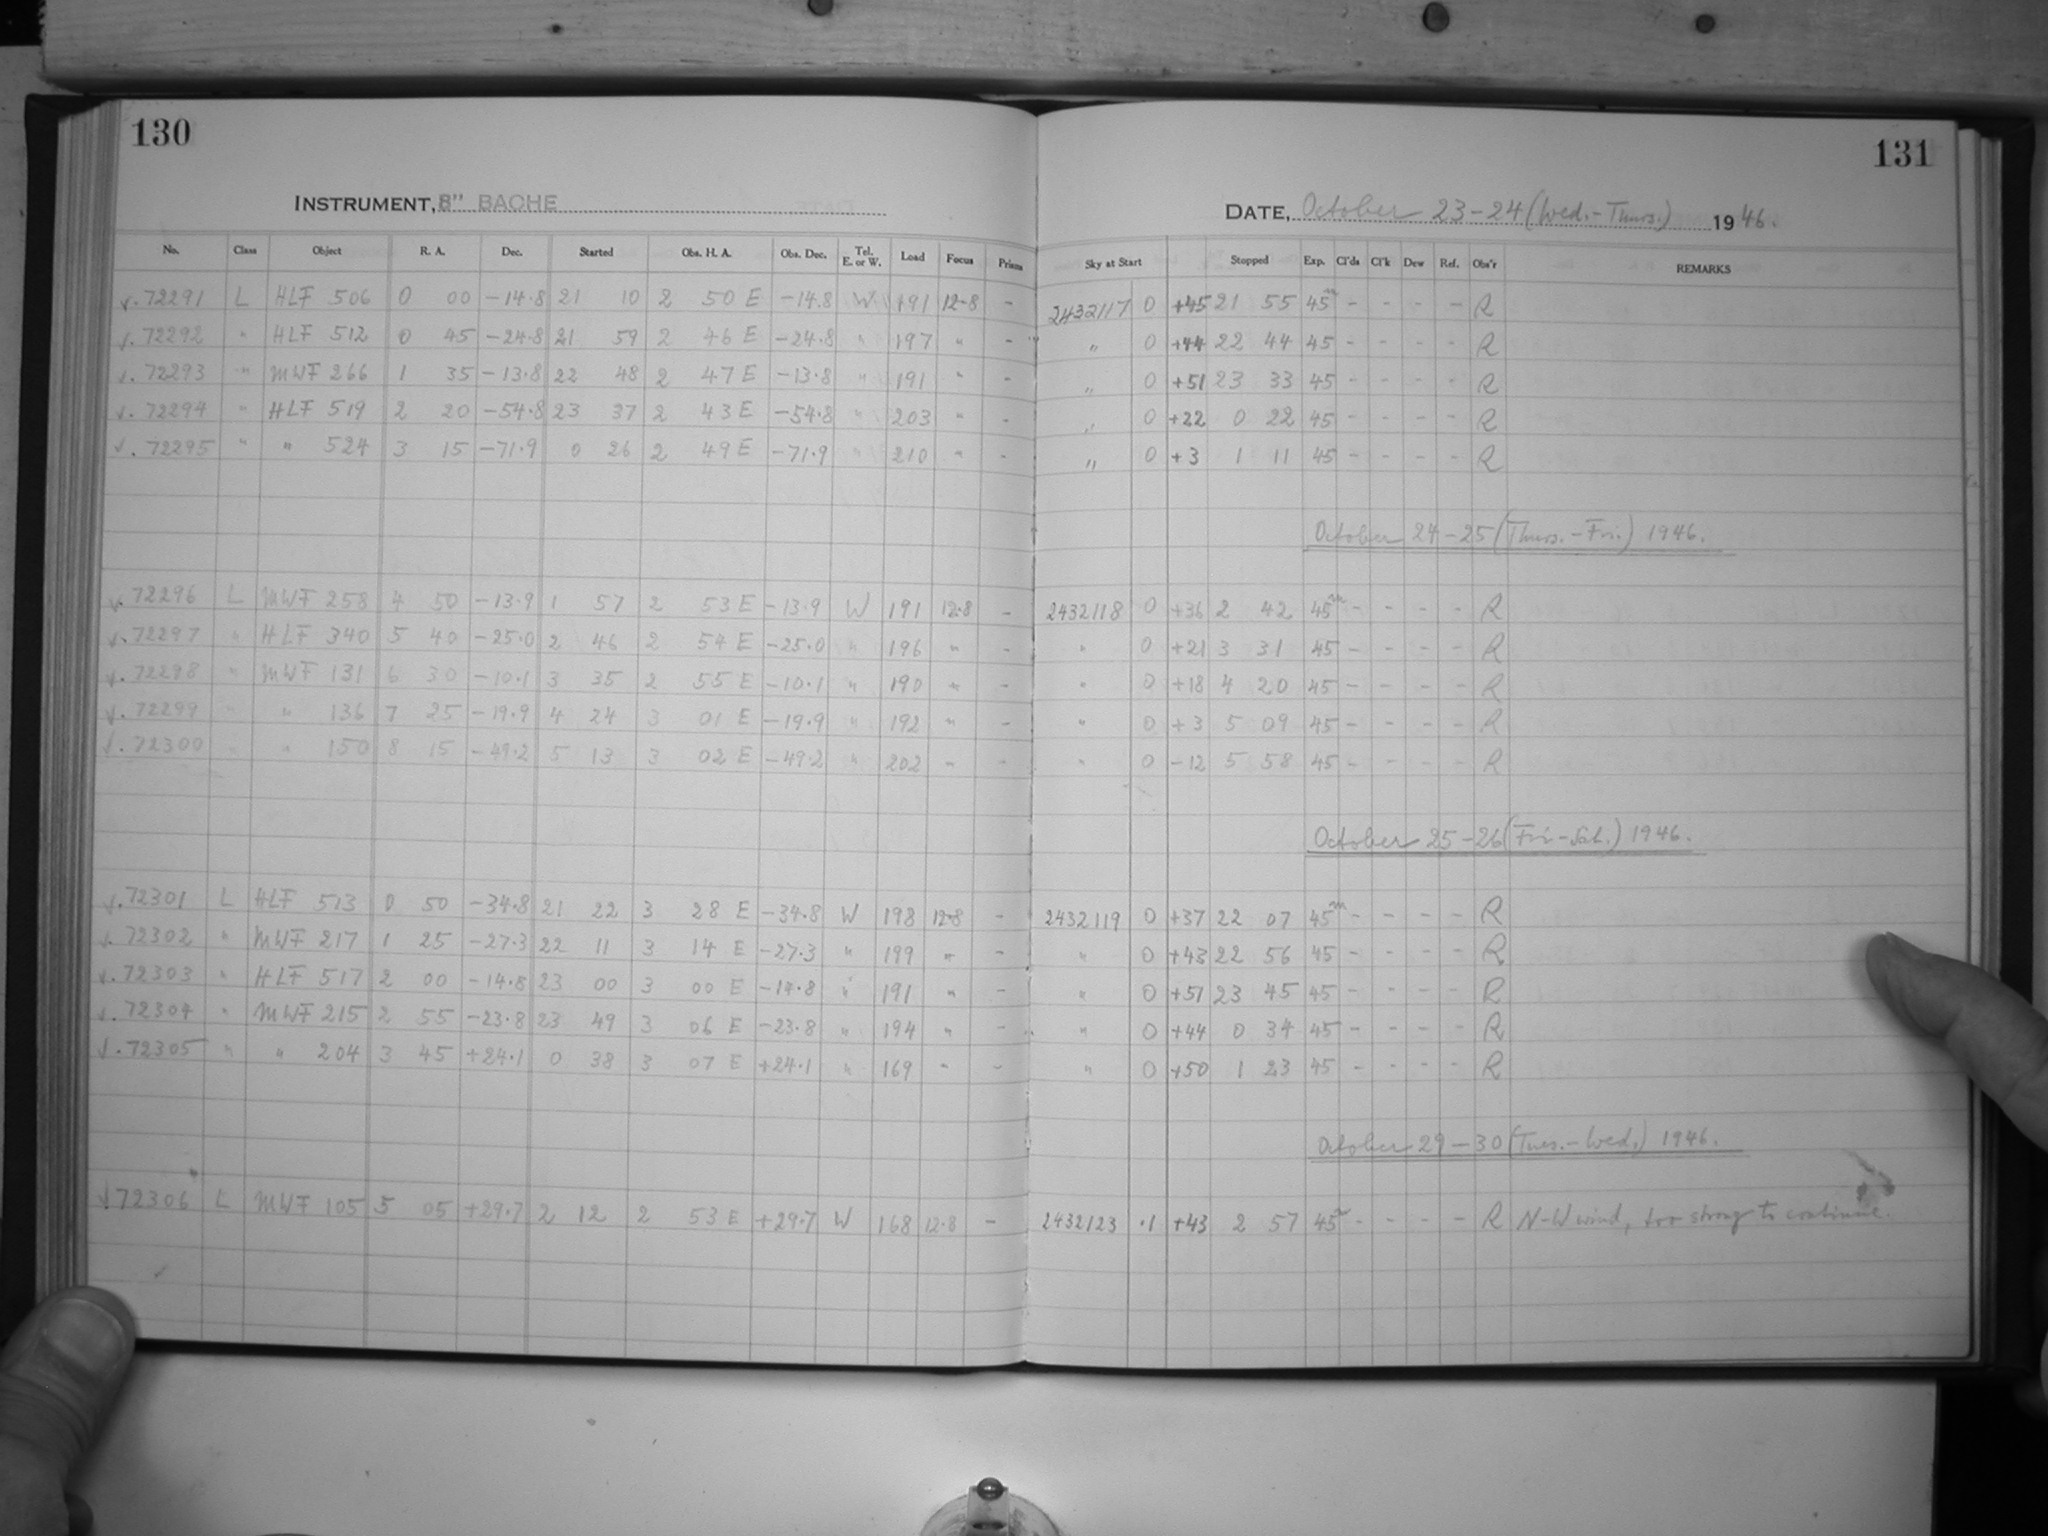 130
INSTRUMENT, 8" BACHE
No. Class Object R. A. Dec. Started Obs. H. A. Obs. Dec. Tel. E. or W. Load Focus Prism
√. 72291 L HLF 506 0 00 -14.8 21 10 2 50 E -14.8 W 191 12.8 -
√. 72292 " HLF 512 0 45 -24.8 21 59 2 46 E -24.8 " 197 " -
√. 72293 " MWF 266 1 35 -13.8 22 48 2 47 E -13.8 " 191 " -
√. 72294 " HLF 519 2 20 -54.8 23 37 2 43 E -54.8 " 203 " -
√. 72295 " " 524 3 15 -71.9 0 26 2 49 E -71.9 " 210 " -
√. 72296 L MWF 258 4 50 -13.9 1 57 2 53 E -13.9 W 191 12.8 -
√. 72297 " HLF 340 5 40 -25.0 2 46 2 54 E -25.0 " 196 " -
√. 72298 " MWF 131 6 30 -10.1 3 35 2 55 E -10.1 " 190 " -
√. 72299 " " 136 7 25 -19.9 4 24 3 01 E -19.9 " 192 " -
√. 72300 " " 150 8 15 -49.2 5 13 3 02 E -49.2 " 202 " -
√. 72301 L HLF 513 0 50 -34.8 21 22 3 28 E -34.8 W 198 12.8 -
√. 72302 " MWF 217 1 25 -27.3 22 11 3 14 E -27.3 " 199 " -
√. 72303 " HLF 517 2 00 -14.8 23 00 3 00 E -14.8 " 191 " -
√. 72304 " MWF 215 2 55 -23.8 23 49 3 06 E -23.8 " 194 " -
√. 72305 " " 204 3 45 +24.1 0 38 3 07 E +24.1 " 169 " -
√. 72306 L MWF 105 5 05 +29.7 2 12 2 53 E +29.7 W 168 12.8 -
131
DATE, October 23-24 (Wed.-Thurs.) 1946.
Sky at Start Stopped Exp. Cl'ds Cl'k Dew Ref. Obs'r REMARKS
2432117 0 +45 21 55 45m - - - - R
" 0 +44 22 44 45 - - - - R
" 0 +51 23 33 45 - - - - R
" 0 +22 0 22 45 - - - - R
" 0 +3 1 11 45 - - - - R
October 24-25 (Thurs.-Fri.) 1946.
2432118 0 +36 2 42 45m - - - - R
" 0 +21 3 31 45 - - - - R
" 0 +18 4 20 45 - - - - R
" 0 +3 5 09 45 - - - - R
" 0 -12 5 58 45 - - - - R
October 25-26 (Fri-Sat.) 1946.
2432119 0 +37 22 07 45m - - - - R
" 0 +43 22 56 45 - - - - R
" 0 +51 23 45 45 - - - - R
" 0 +44 0 34 45 - - - - R
" 0 +50 1 23 45 - - - - R
October 29-30 (Tues.-Wed.) 1946.
2432123 .1 +43 2 57 45m - - - - R N-W wind, too strong to continue.